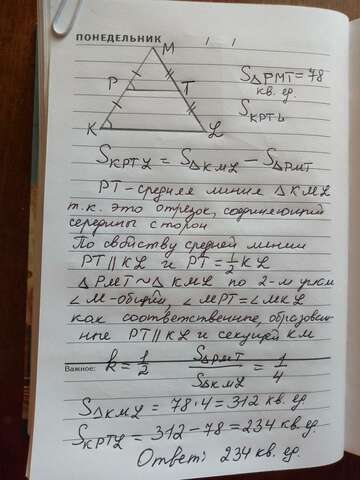 ПОНЕДЕЛЬНИК / /
M
P T
K L
S△PMT = 78
кв. ед.
SKPTL
SKPTL = S△KML − S△PMT
PT - средняя линия △KML
т.к. это отрезок, соединяющий
середины сторон
По свойству средней линии
PT ∥ KL и PT = 1/2 KL
△PMT ~ △KML по 2-м углам
∠M - общий, ∠MPT = ∠MKL
как соответственные, образован-
ные PT ∥ KL и секущей KM
Важное: k = 1/2 S△PMT/S△KML = 1/4
S△KML = 78·4 = 312 кв. ед.
SKPTL = 312 − 78 = 234 кв. ед.
Ответ: 234 кв. ед.